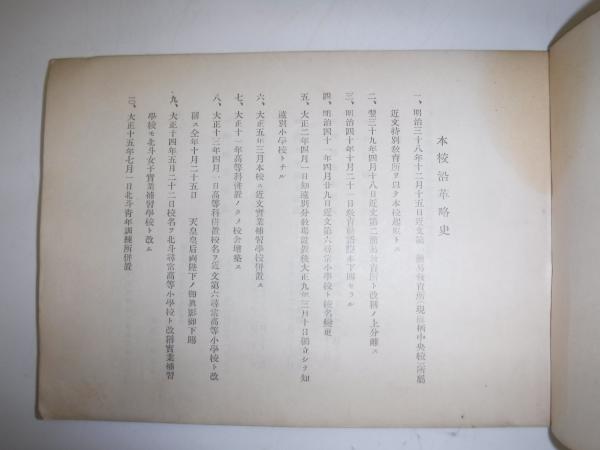 本校沿革略史
一、明治三十八年十二月十五日近文第一簡易敎育所(現鷹栖中央校)所屬
近文特別敎育所ヲ以テ本校起原トス
二、翌三十九年四月十八日近文第二簡易敎育所ト改稱ノ上分離ス
三、明治四十年十月二十一日敎育勅語謄本下附セラル
四、明治四十一年四月廿九日近文第六尋常小學校ト校名變更
五、大正二年四月一日知遠別分敎場設置後大正九年三月十日獨立シテ知
遠別小學校トナル
六、大正五年三月本校ニ近文實業補習學校併置ス
七、大正十一年高等科併置ノタメ校舍增築ス
八、大正十三年四月一日高等科併置校名ヲ近文第六尋常高等小學校ト改
稱ス仝年十月二十五日 天皇皇后兩陛下ノ御眞影御下賜
九、大正十四年五月二十二日校名ヲ北斗尋常高等小學校ト改稱實業補習
學校モ北斗女子實業補習學校ト改ム
一〇、大正十五年七月一日北斗靑年訓練所併置